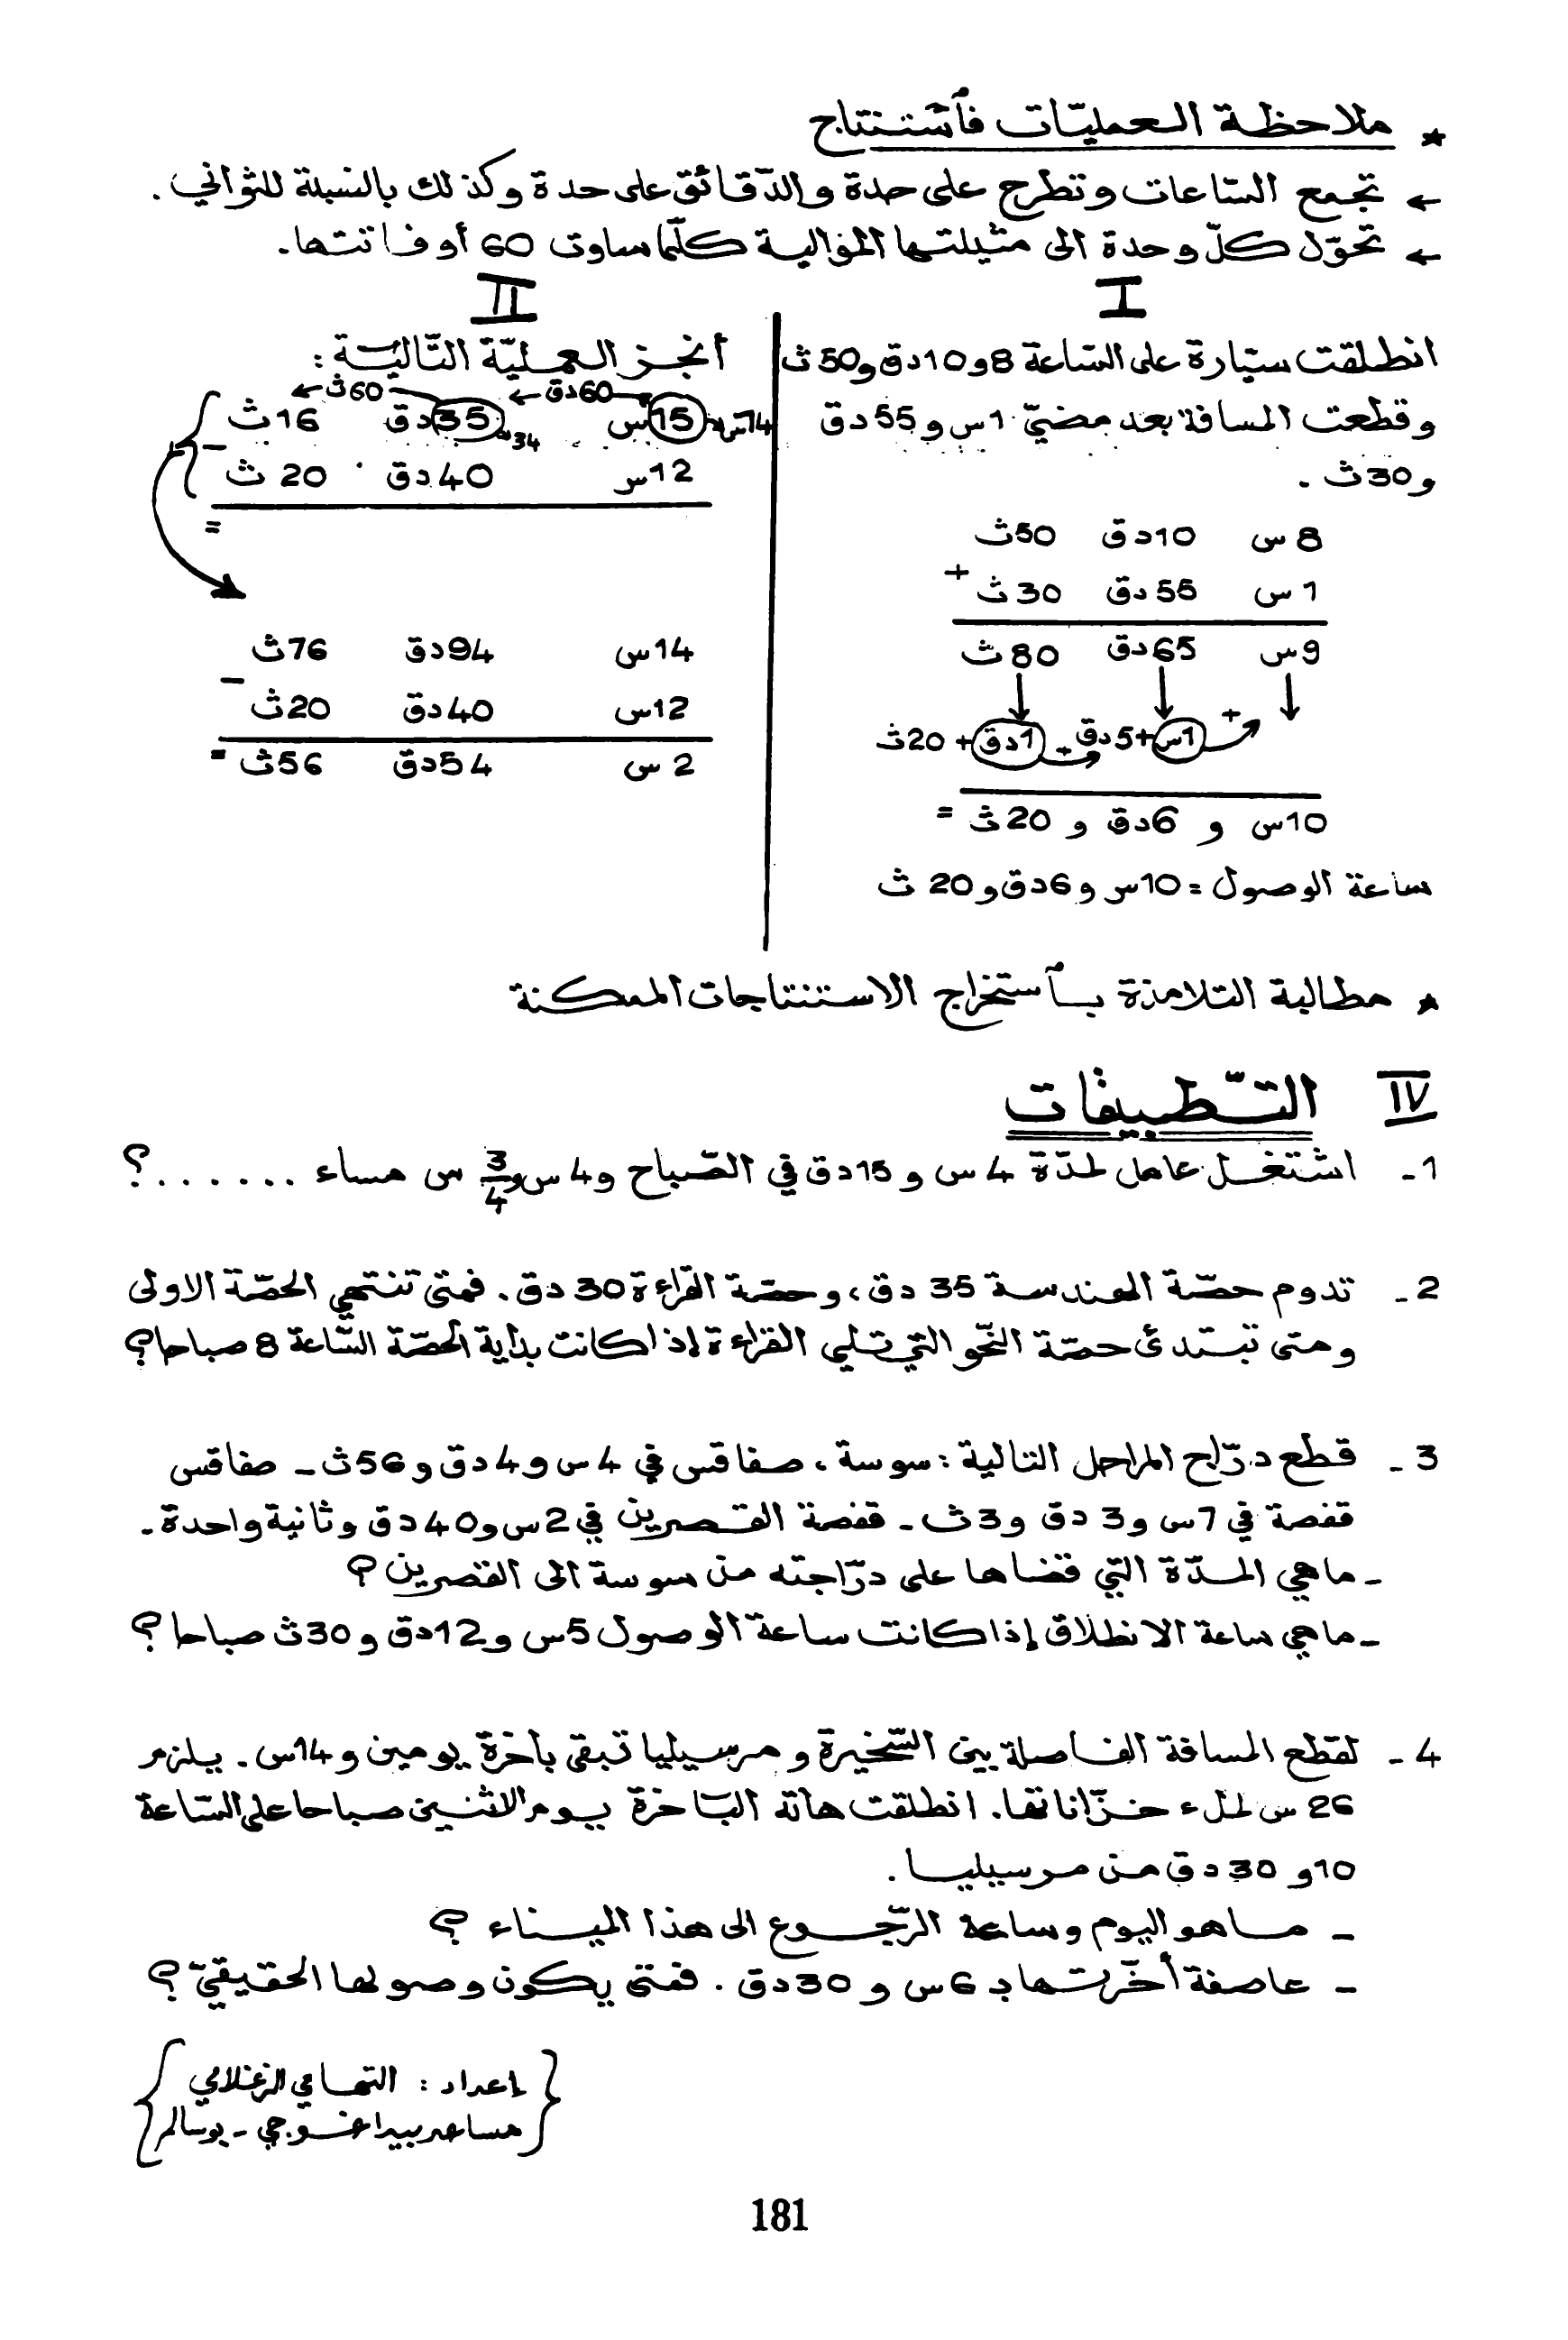 * ملاحظة العمليّات فٱستنتاج
← تجمع السّاعات وتطرح على حدة والدّقائق على حدة وكذلك بالنسبة للثواني .
← تحوّل كلّ وحدة الى مثيلتها الموالية كلّما ساوت 60 أو فاتتها .
I
انطلقت سيّارة على السّاعة 8 و10دق و50 ث
وقطعت المسافة بعد مضيّ 1س و55 دق
و30ث .
8 س 10دق 50ث
+
1 س 55 دق 30 ث
9س 65دق 80 ث
+ 1س + 5دق + 1دق + 20ث
10س و 6دق و 20ث =
ساعة الوصول = 10س و6دق و20 ث
II
أنجز العمليّة التّالية :
60دق ← 60ث ←
14س 15س 34 35دق 16ث
−
12س 40دق 20 ث
=
14س 94دق 76ث
−
12س 40دق 20ث
2 س 54دق 56ث =
* مطالبة التلامذة بٱستخراج الاستنتاجات الممكنة
IV التّطبيقات
1 - اشتغل عامل لمدّة 4 س و 15دق في الصّباح و4 س و 3/4 س مساء . . . . . . . ؟
2 - تدوم حصّة الهندسة 35 دق ، وحصّة القراءة 30 دق . فمتى تنتهي الحصّة الاولى
ومتى تبتدئ حصّة النّحو التي تلي القراءة إذا كانت بداية الحصّة السّاعة 8 صباحا ؟
3 - قطع درّاج المراحل التالية : سوسة ، صفاقس في 4 س و4 دق و56ث - صفاقس
قفصة في 7س و3 دق و3ث - قفصة القصرين في 2س و40دق وثانية واحدة .
- ماهي المدّة التّي قضاها على درّاجته من سوسة الى القصرين ؟
- ماهي ساعة الانطلاق إذا كانت ساعة الوصول 5س و12دق و30ث صباحا ؟
4 - لقطع المسافة الفاصلة بين السّخيرة ومرسيليا تبقى باخرة يومين و14س . يلزم
26 س لملء خزّاناتها . انطلقت هاته البّاخرة يوم الاثنين صباحا على السّاعة
10و 30 دق من مرسيليا .
- ماهو اليوم وساعة الرّجوع الى هذا الميناء ؟
- عاصفة أخّرتها بـ 6س و 30دق . فمتى يكون وصولها الحقيقيّ ؟
إعداد : التهامي الزغلامي
مساعد بيداغوجي - بوسالم
181